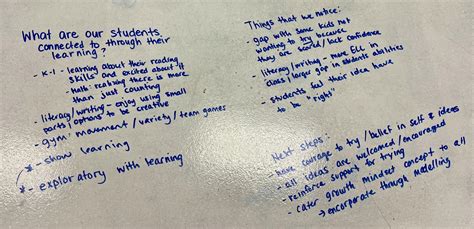 What are our students
connected to through their
learning?
- K-1 - learning about their reading
skills and excited about it
- math: realizing there is more
than just counting
- literacy/writing - enjoy using small
parts / options to be creative
- gym: movement / variety / team games
* - show learning
* - exploratory with learning
Things that we notice:
- gap with some kids not
wanting to try because
they are scared / lack confidence
- literacy/writing - more ELL in
class / larger gap in students abilities
- students feel their idea have
to be "right"
Next steps:
- have courage to try / belief in self & ideas
- all ideas are welcomed / encouraged
- reinforce support for trying
- cater growth mindset concept to all
→ encorporate through modelling